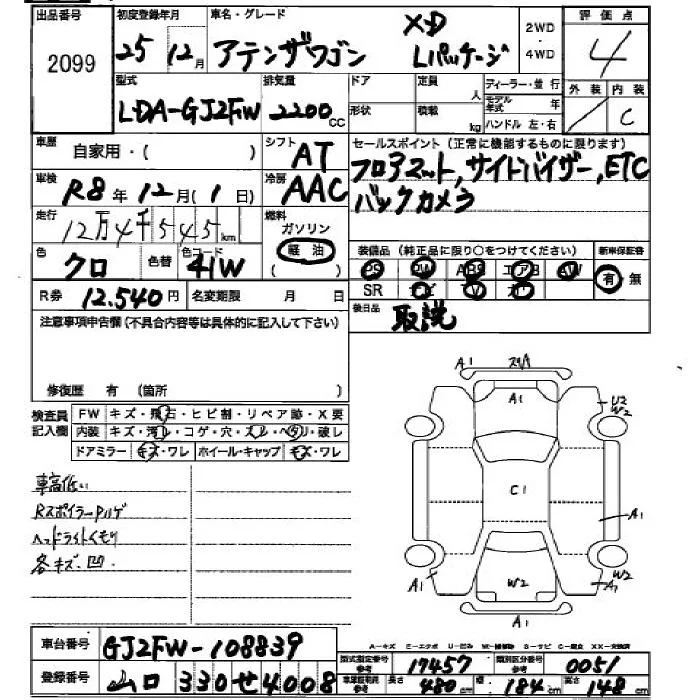 出品番号
2099
初度登録年月
25年12月
車名・グレード
アテンザワゴン
XD
Lパッケージ
2WD
・
4WD
評価点
4
外装 内装
C
型式
LDA-GJ2FW
排気量
2200cc
ドア
形状
定員
人
積載
kg
ディーラー・並行
モデル年式 年
ハンドル 左・右
車歴
自家用・( )
シフト
AT
セールスポイント(正常に機能するものに限ります)
フロアマット,サイドバイザー,ETC
バックカメラ
車検
R8年12月(1日)
冷房
AAC
走行
12万4千545km
燃料
ガソリン
軽油
( )
色
クロ
色替
色コード
41W
装備品(純正品に限り○をつけてください)
PS PW ABS エアB AW
SR ナビ TV カワ
新車保証書
有 無
R券 12.540円
名変期限 月 日
後日品
取説
注意事項申告欄(不具合内容等は具体的に記入して下さい)
修復歴 有 (箇所 )
検査員記入欄
FW キズ・飛石・ヒビ割・リペア跡・X要
内装 キズ・汚レ・コゲ・穴・スレ・ヘタリ・破レ
ドアミラー キズ・ワレ ホイール・キャップ キズ・ワレ
車高低い
Rスポイラーハゲ
ヘッドライトくもり
各キズ.凹.
A1
スリキ
A1
U2
W2
C1
A1
W2
A1
W2
A1
A1
車台番号
GJ2FW-108839
登録番号
山口 330せ4008
A-キズ E-エクボ U-凹ミ W-補修跡 S-サビ C-腐食 XX-交換済
型式指定番号 参考
17457
類別区分番号 参考
0051
車両諸元 参考
長さ 480cm
幅 184cm
高さ 148cm